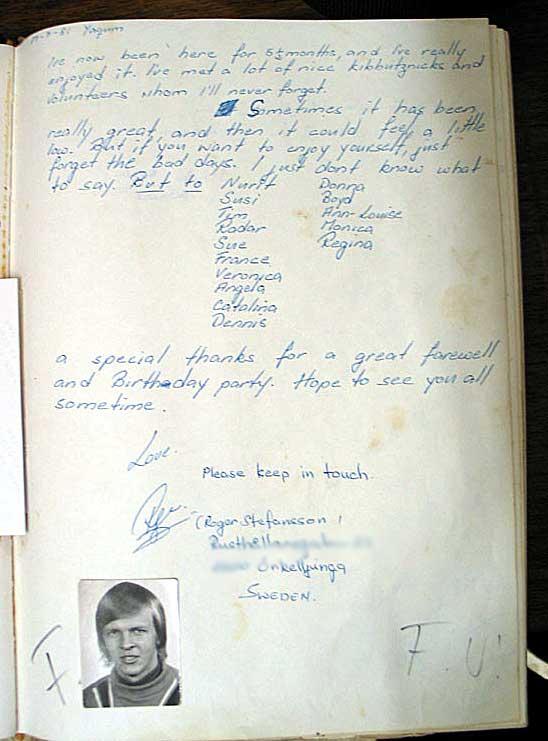 Yagum
I've now been here for 5½ months, and I've really
enjoyed it. I've met a lot of nice kibbutznicks and
volunteers whom I'll never forget.
Sometimes it has been
really great, and then it could feel a little
low. But if you want to enjoy yourself, just
forget the bad days. I just dont know what
to say. But to
Nurit
Susi
Tim
Radar
Sue
France
Veronica
Angela
Catalina
Dennis
Donna
Boyd
Ann-Louise
Monica
Regina
a special thanks for a great farewell
and Birthday party. Hope to see you all
sometime.
Love.
Please keep in touch.
(Roger Stefansson)
Örkelljunga
SWEDEN.
F.
F.U!